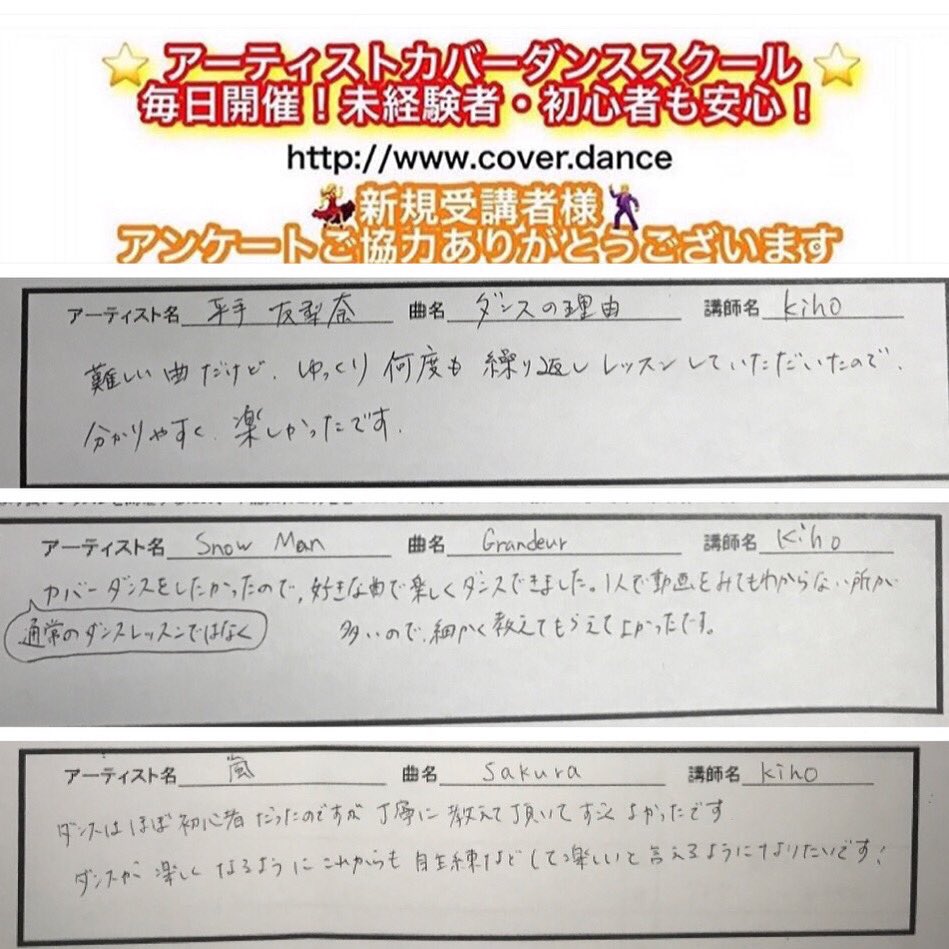 ⭐アーティストカバーダンススクール⭐
毎日開催！未経験者・初心者も安心！
http://www.cover.dance
💃新規受講者様🕺
アンケートご協力ありがとうございます
アーティスト名 平手 友梨奈 曲名 ダンスの理由 講師名 kiho
難しい曲だけど、ゆっくり何度も繰り返しレッスンしていただいたので、
分かりやすく、楽しかったです。
アーティスト名 Snow Man 曲名 Grandeur 講師名 kiho
カバーダンスをしたかったので、好きな曲で楽しくダンスできました。1人で動画をみてもわからない所が
通常のダンスレッスンではなく 多いので、細かく教えてもらえてよかったです。
アーティスト名 嵐 曲名 Sakura 講師名 kiho
ダンスはほぼ初心者だったのですが 丁寧に教えて頂いて すごくよかったです
ダンスが楽しくなるようにこれからも自主練などして楽しいと言えるようになりたいです！